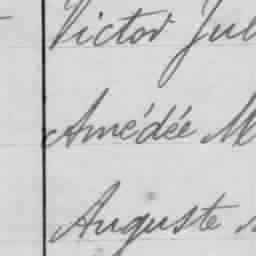 Victor Jul
Amédée M
Auguste